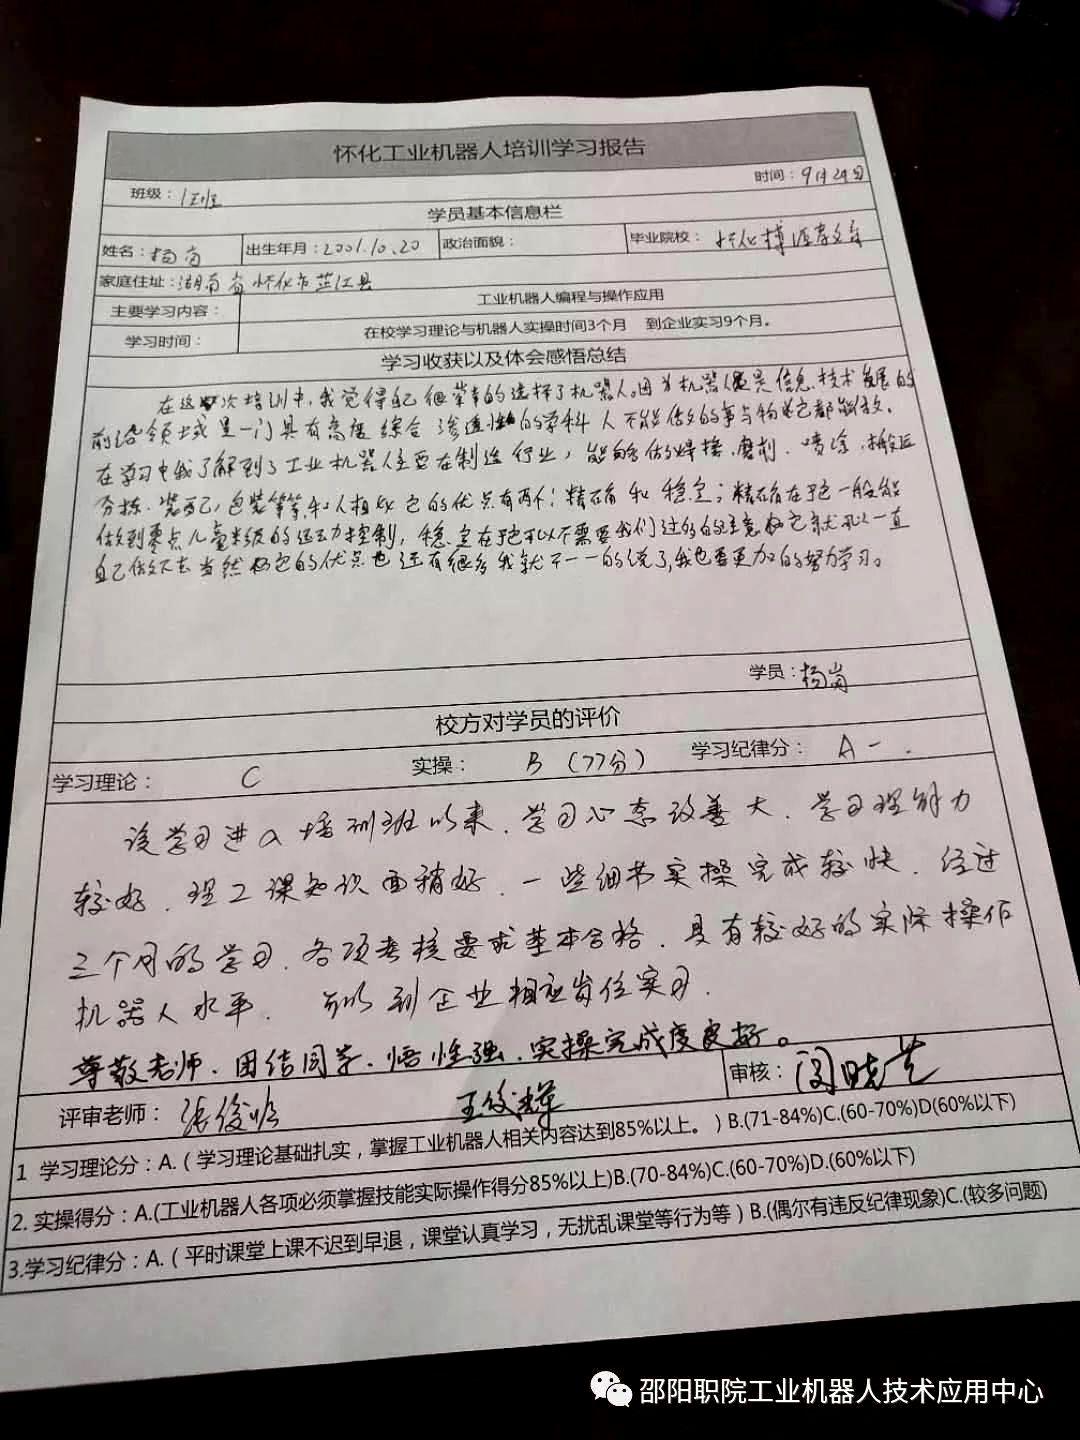 怀化工业机器人培训学习报告
班级：1班 时间：9月29日
学员基本信息栏
姓名：杨岗 出生年月：2001.10.20 政治面貌： 毕业院校：怀化博
家庭住址：湖南省怀化市芷江县
主要学习内容： 工业机器人编程与操作应用
学习时间： 在校学习理论与机器人实操时间3个月 到企业实习9个月。
学习收获以及体会感悟总结
在这次培训中，我觉得自己很荣幸的选择了机器人。因为机器人是信息技术发展的
前沿领域是一门具有高度综合渗透性的学科人不能做的事与物它都能做。
在学习中我了解到了工业机器人主要在制造行业，能够做焊接、磨削、喷涂、搬运
分拣、装配，包装等等，和人相似它的优点有两个：精准和稳定；精准在于它一般能
做到零点几毫米级的运动控制，稳定在于它可以不需要我们过多的注意它就可以一直
自己做下去当然它的优点也还有很多我就不一一的说了，我也要更加的努力学习。
学员：杨岗
校方对学员的评价
学习理论： C 实操： B（77分） 学习纪律分： A-.
该学习进入培训班以来、学习心态改善大、学习理解力
较好、理工课知识面稍好、一些细节实操完成较快、经过
三个月的学习、各项考核要求基本合格、具有较好的实际操作
机器人水平、可以到企业相应岗位实习、
尊敬老师、团结同学、悟性强、实操完成度良好。
评审老师：张俊 王俊 审核：
1 学习理论分：A.（学习理论基础扎实，掌握工业机器人相关内容达到85%以上。）B.(71-84%)C.(60-70%)D(60%以下)
2. 实操得分：A.(工业机器人各项必须掌握技能实际操作得分85%以上)B.(70-84%)C.(60-70%)D.(60%以下)
3.学习纪律分：A.（平时课堂上课不迟到早退，课堂认真学习，无扰乱课堂等行为等）B.(偶尔有违反纪律现象)C.(较多问题)
邵阳职院工业机器人技术应用中心